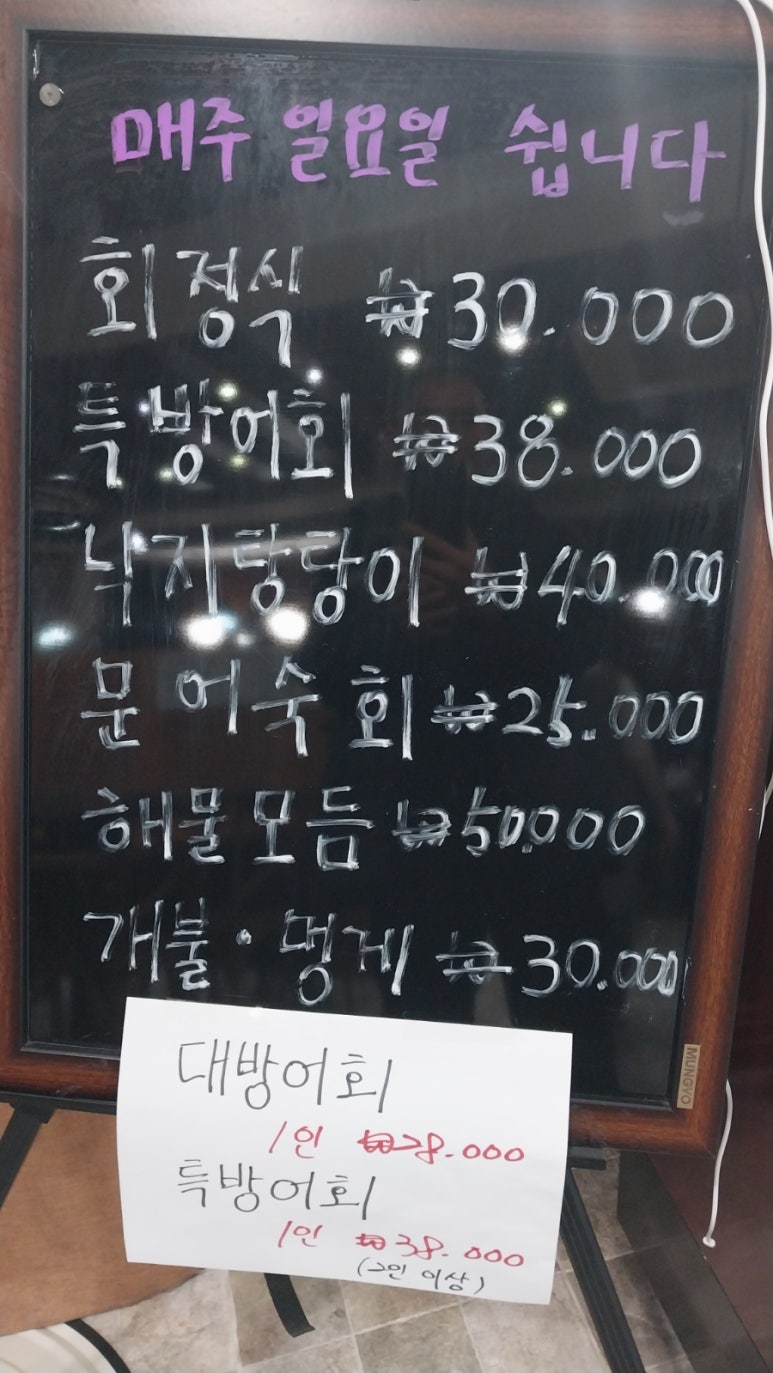 매주 일요일 쉽니다
회정식 ₩30.000
특방어회 ₩38.000
낙지탕탕이 ₩40.000
문어숙회 ₩25.000
해물모듬 ₩50.000
개불·멍게 ₩30.000
MUNGYO
대방어회
1인 ₩28.000
특방어회
1인 ₩38.000
(2인 이상)